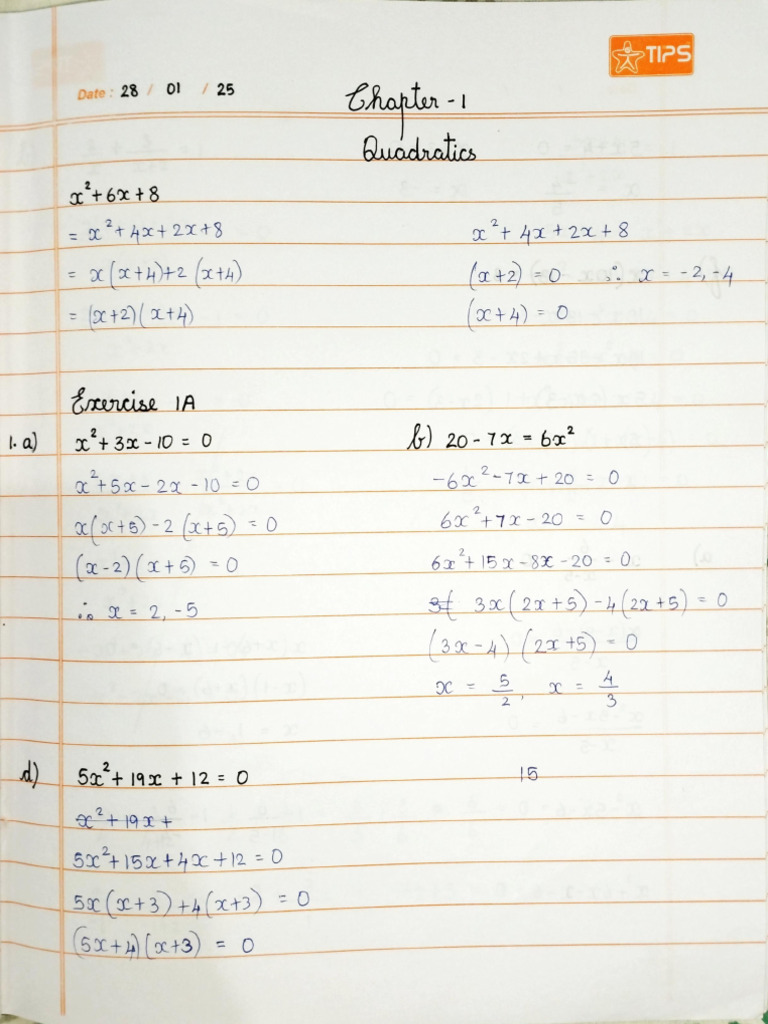 TIPS
Date : 28 / 01 / 25
Chapter - 1
Quadratics
x² + 6x + 8
= x² + 4x + 2x + 8
= x(x+4)+2(x+4)
= (x+2)(x+4)
x² + 4x + 2x + 8
(x+2) = 0 ∴ x = -2, -4
(x+4) = 0
Exercise 1A
1. a) x² + 3x - 10 = 0
x² + 5x - 2x - 10 = 0
x(x+5) - 2(x+5) = 0
(x-2)(x+5) = 0
∴ x = 2, -5
b) 20 - 7x = 6x²
-6x² - 7x + 20 = 0
6x² + 7x - 20 = 0
6x² + 15x - 8x - 20 = 0
3x(2x+5) - 4(2x+5) = 0
(3x-4) (2x+5) = 0
x = 5/2, x = 4/3
d) 5x² + 19x + 12 = 0
15
x² + 19x +
5x² + 15x + 4x + 12 = 0
5x(x+3) + 4(x+3) = 0
(5x+4)(x+3) = 0